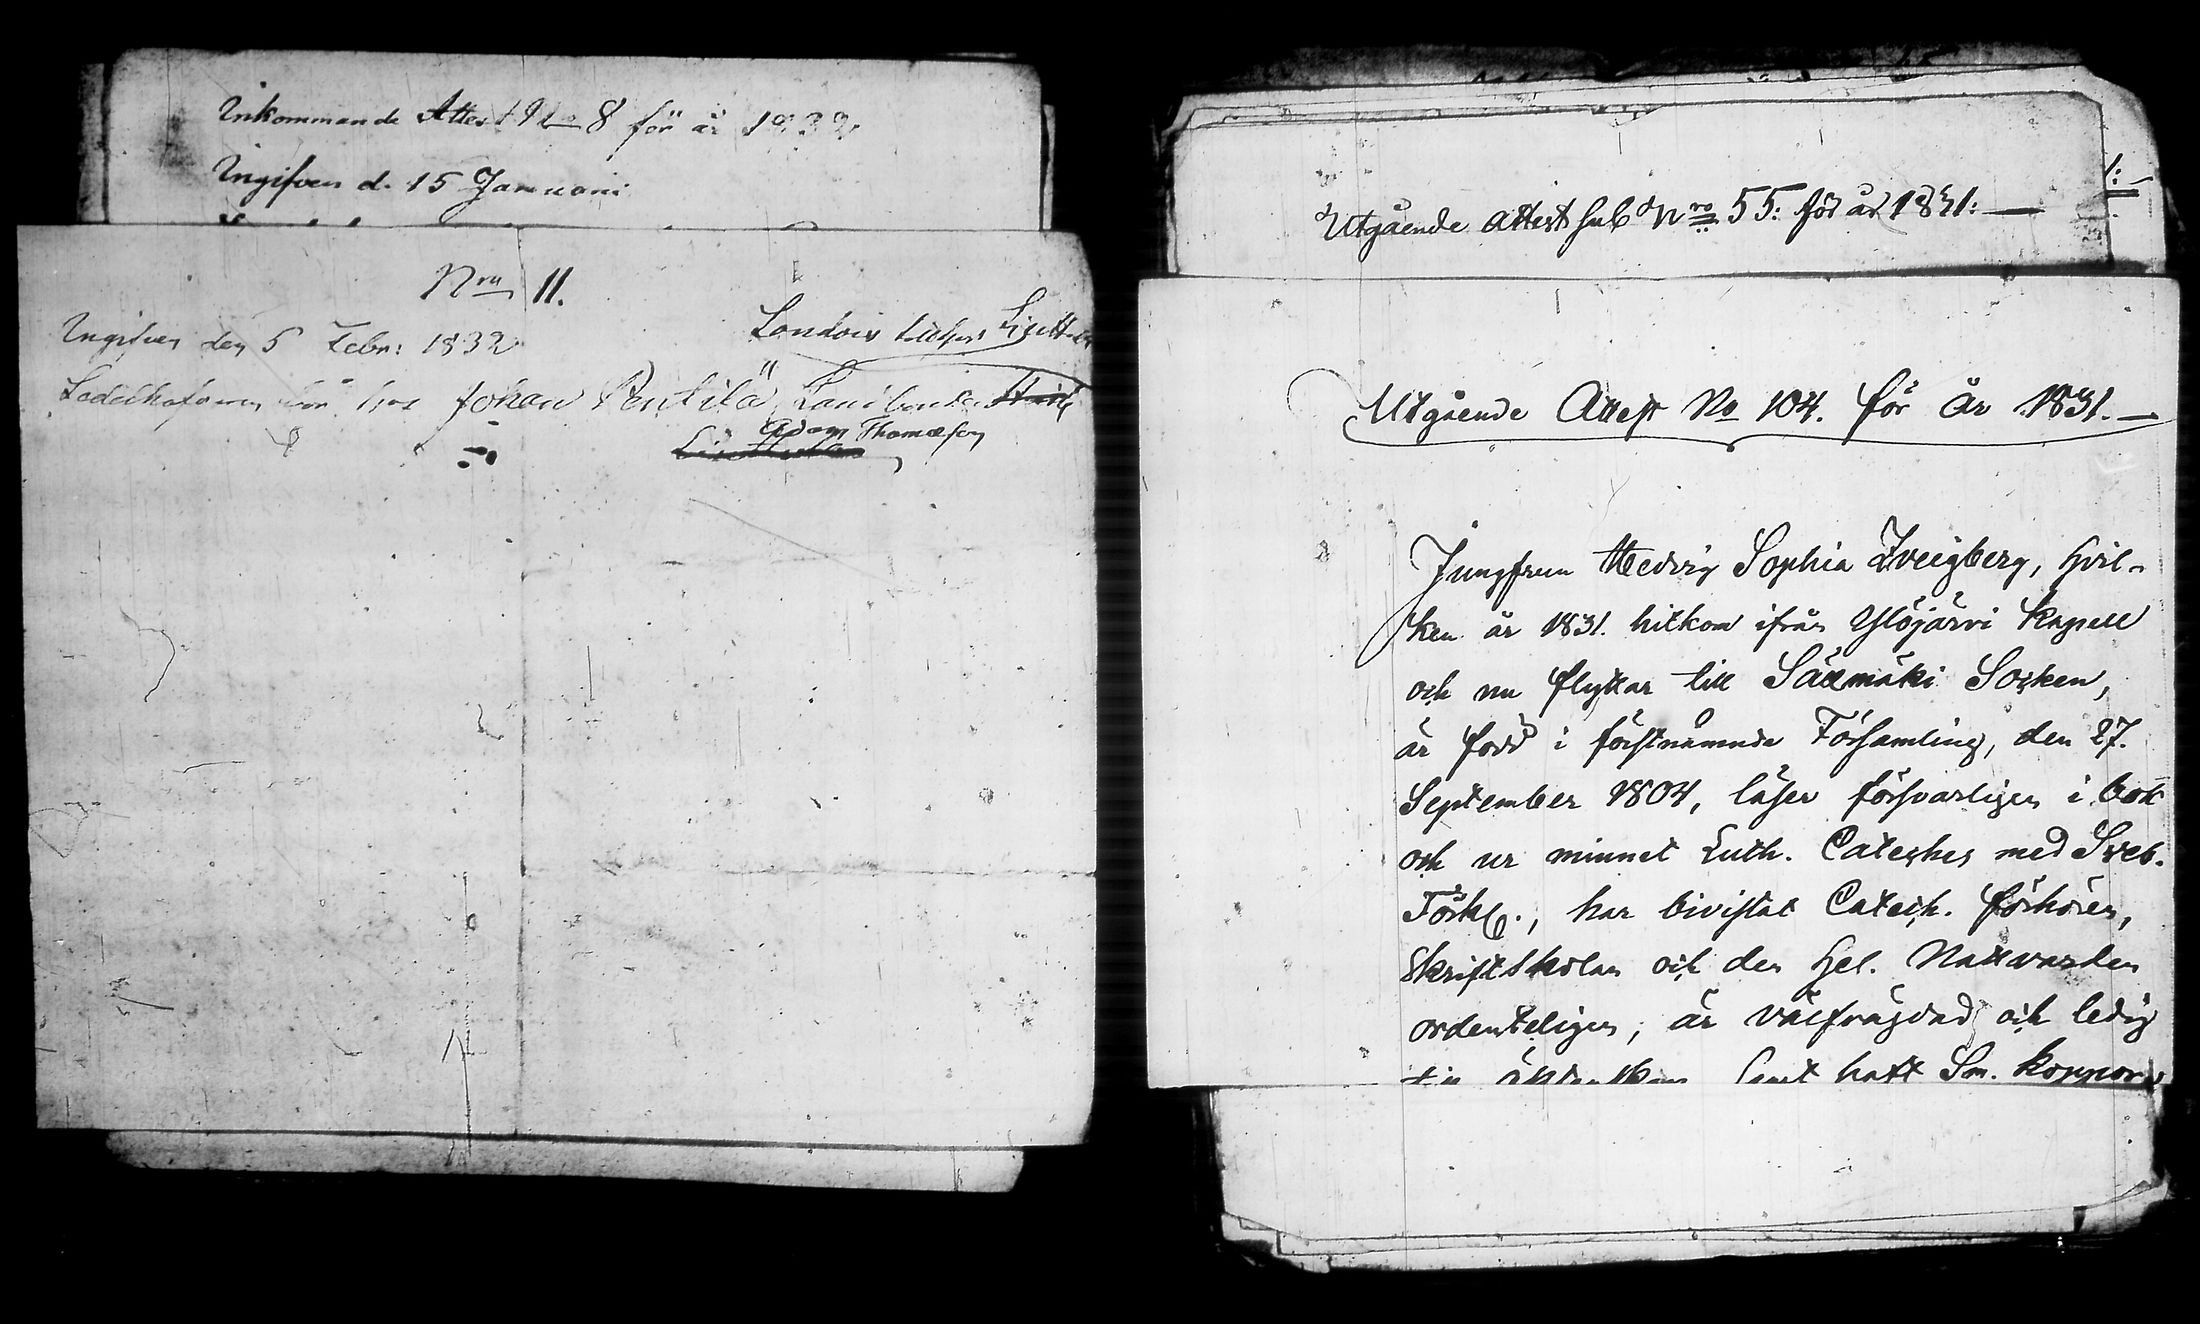 Inkommande Attest No 8 för år 1832
Ingifven d. 15 Januari
Nro 11.
Ingifven den 5 Febr: 1832
Johan Penttilä
Adam Thomasson
Utgående Attest sub Nro 55: för år 1831:
Utgående Attest No 104. för År 1831.
Jungfrun Hedvig Sophia Zveigberg, hvil-
ken år 1831. hitkom ifrån Ylöjärvi Kapell
och nu flyttar till Sääxmäki Socken,
är född i förstnämnde Församling, den 27.
September 1804, läser försvarligen i bok
och ur minnet Luth. Cateches med Sveb.
Förkl., har bivistat Catech. förhören,
Skriftskolan och den Hel. Nattvarden
ordenteligen, är välfrägdad och ledig
till äktenskap samt haft Sm. koppor